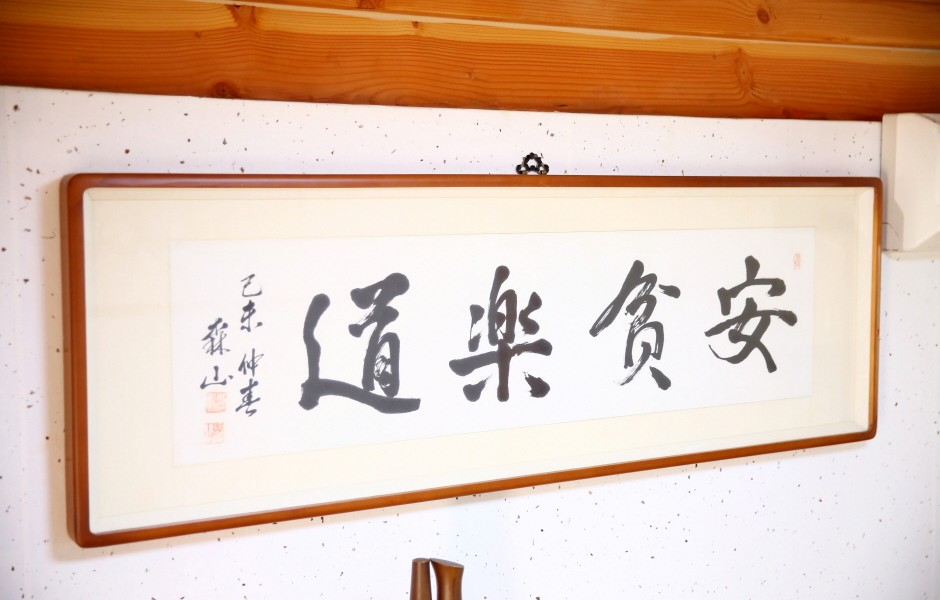 安貧楽道
己未仲春
森山